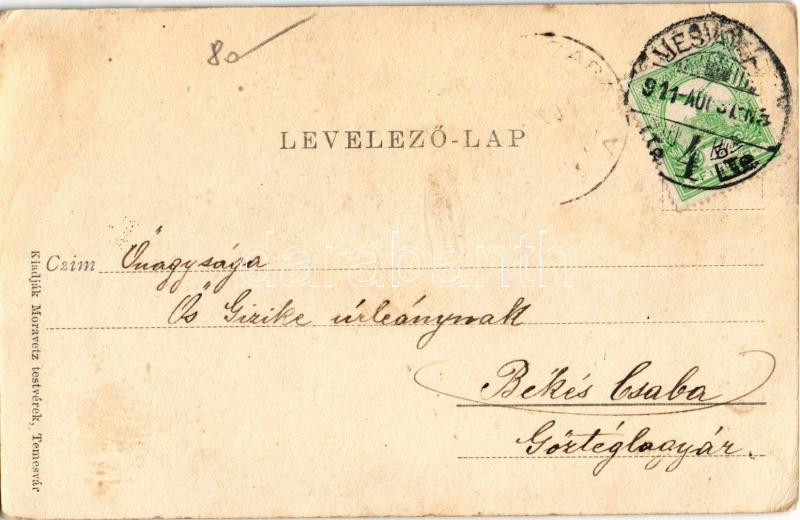 80
LEVELEZŐ-LAP
911-AUG
4
FI
Czim Őnagysága
Ős Gizike úrleánynak
Békés Csaba
Gőztéglagyár.
Kiadják Moravetz testvérek, Temesvár
darabanth